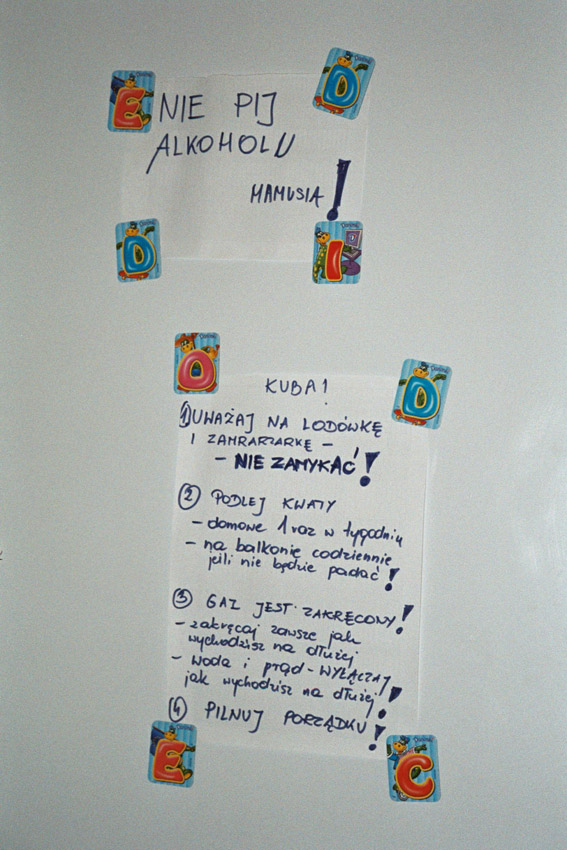 E
D
NIE PIJ
ALKOHOLU
MAMUSIA!
D
I
O
D
KUBA!
1) UWAŻAJ NA LODÓWKĘ
I ZAMRAŻARKĘ –
– NIE ZAMYKAĆ!
2) PODLEJ KWIATY
– domowe 1 raz w tygodniu
– na balkonie codziennie
jeśli nie będzie padać!
3) GAZ JEST ZAKRĘCONY!
– zakręcaj zawsze jak
wychodzisz na dłużej
– woda i prąd – WYŁĄCZAJ
jak wychodzisz na dłużej!
4) PILNUJ PORZĄDKU!
E
C